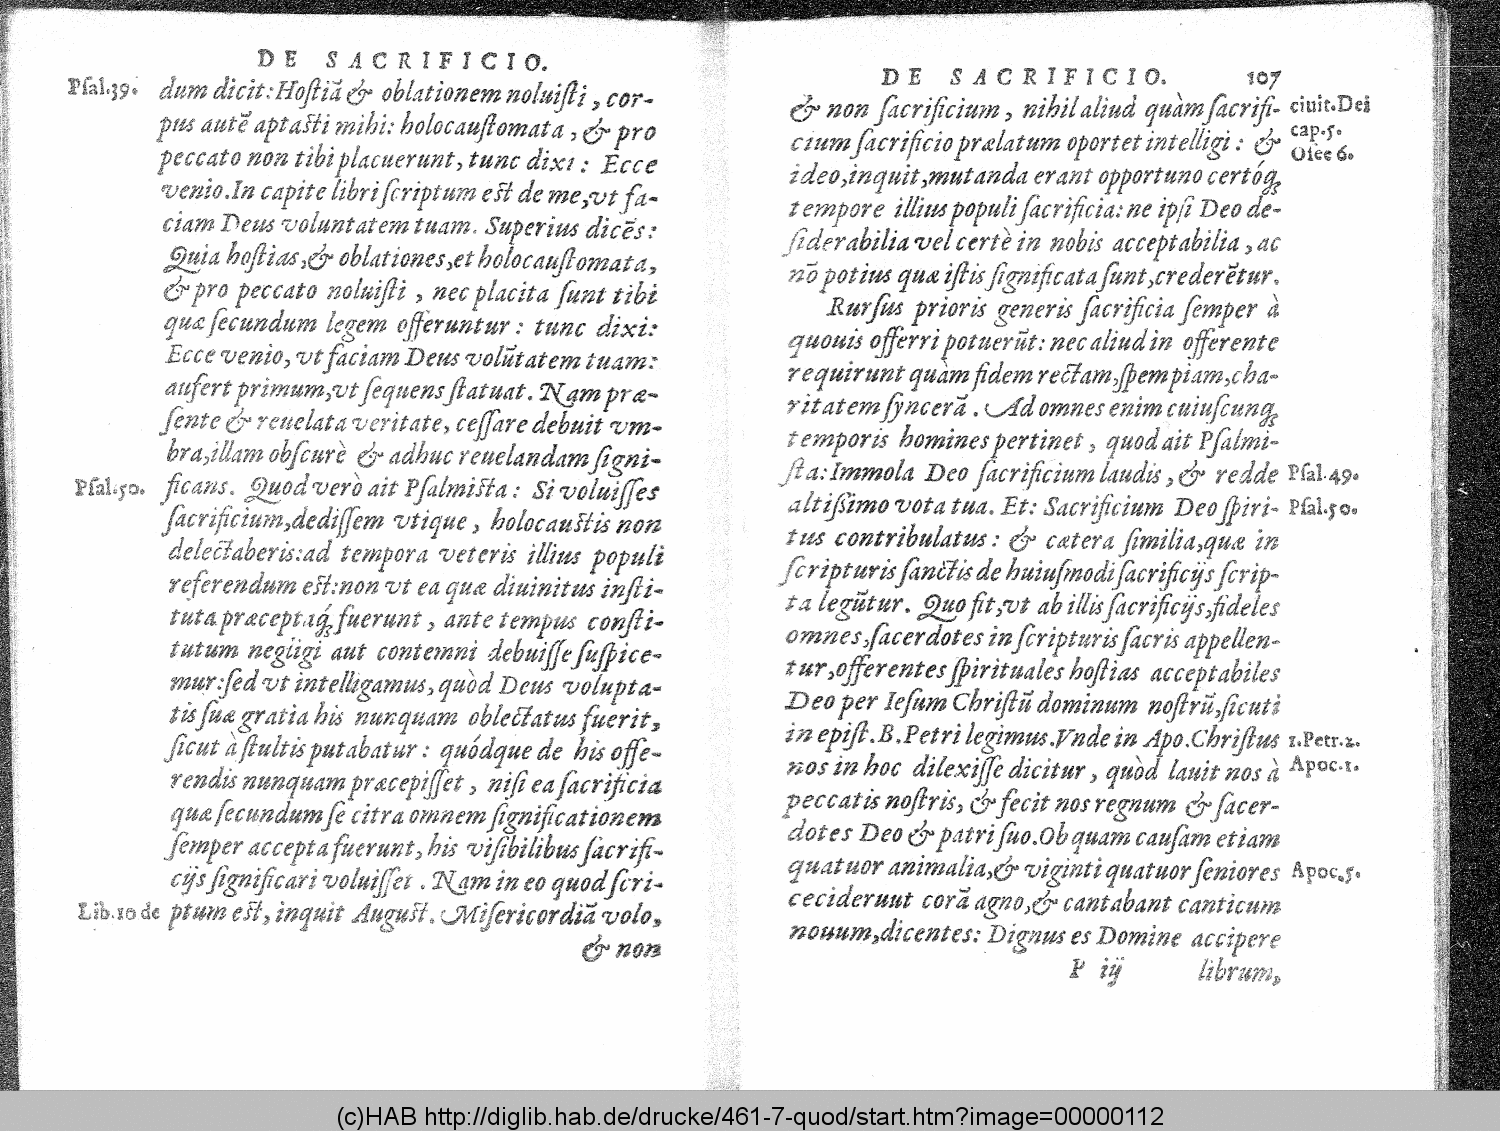 DE SACRIFICIO.
Pſal.39. dum dicit: Hoſtiã & oblationem noluiſti, cor-
pus autẽ aptaſti mihi: holocauſtomata, & pro
peccato non tibi placuerunt, tunc dixi: Ecce
venio. In capite libri ſcriptum eſt de me, vt fa-
ciam Deus voluntatem tuam. Superius dicẽs:
Quia hoſtias, & oblationes, et holocauſtomata,
& pro peccato noluiſti, nec placita ſunt tibi
quæ ſecundum legem offeruntur: tunc dixi:
Ecce venio, vt faciam Deus volũtatem tuam:
aufert primum, vt ſequens ſtatuat. Nam præ-
ſente & reuelata veritate, ceſſare debuit vm-
bra, illam obſcurè & adhuc reuelandam ſigni-
Pſal.50. ficans. Quod verò ait Pſalmiſta: Si voluiſſes
ſacrificium, dediſſem vtique, holocauſtis non
delectaberis: ad tempora veteris illius populi
referendum eſt: non vt ea quæ diuinitus inſti-
tuta præceptáq; fuerunt, ante tempus conſti-
tutum negligi aut contemni debuiſſe ſuſpice-
mur: ſed vt intelligamus, quòd Deus volupta-
tis ſuæ gratia his nunquam oblectatus fuerit,
ſicut à ſtultis putabatur: quódque de his offe-
rendis nunquam præcepiſſet, niſi ea ſacrificia
quæ ſecundum ſe citra omnem ſignificationem
ſemper accepta fuerunt, his viſibilibus ſacrifi-
cijs ſignificari voluiſſet. Nam in eo quod ſcri-
Lib.10 de ptum eſt, inquit Auguſt. Miſericordiã volo,
& non
DE SACRIFICIO. 107
& non ſacrificium, nihil aliud quàm ſacrifi- ciuit.Dei
cap.5.
cium ſacrificio prælatum oportet intelligi: & Oſee 6.
ideo, inquit, mutanda erant opportuno certóq;
tempore illius populi ſacrificia: ne ipſi Deo de-
ſiderabilia vel certè in nobis acceptabilia, ac
nõ potius quæ iſtis ſignificata ſunt, crederẽtur.
Rurſus prioris generis ſacrificia ſemper à
quouis offerri potuerũt: nec aliud in offerente
requirunt quàm fidem rectam, ſpem piam, cha-
ritatem ſyncerã. Ad omnes enim cuiuſcunq;
temporis homines pertinet, quod ait Pſalmi-
ſta: Immola Deo ſacrificium laudis, & redde Pſal.49.
altiſsimo vota tua. Et: Sacrificium Deo ſpiri- Pſal.50.
tus contribulatus: & cætera ſimilia, quæ in
ſcripturis ſanctis de huiuſmodi ſacrificijs ſcrip-
ta legũtur. Quo fit, vt ab illis ſacrificijs, fideles
omnes, ſacerdotes in ſcripturis ſacris appellen-
tur, offerentes ſpirituales hoſtias acceptabiles
Deo per Ieſum Chriſtũ dominum noſtrũ, ſicuti
in epiſt. B. Petri legimus. Vnde in Apo. Chriſtus 1.Petr.2.
nos in hoc dilexiſſe dicitur, quòd lauit nos à Apoc.1.
peccatis noſtris, & fecit nos regnum & ſacer-
dotes Deo & patri ſuo. Ob quam cauſam etiam
quatuor animalia, & viginti quatuor ſeniores Apoc.5.
ceciderunt corã agno, & cantabant canticum
nouum, dicentes: Dignus es Domine accipere
P iij librum,
(c)HAB http://diglib.hab.de/drucke/461-7-quod/start.htm?image=00000112